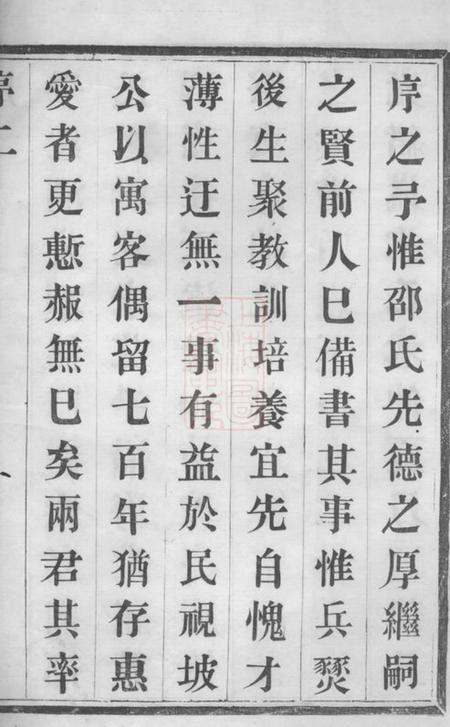 序之予惟邵氏先德之厚繼嗣
之賢前人已備書其事惟兵燹
後生聚教訓培養宜先自愧才
薄性迂無一事有益於民視坡
公以寓客偶留七百年猶存惠
愛者更慙赧無已矣兩君其率
序二